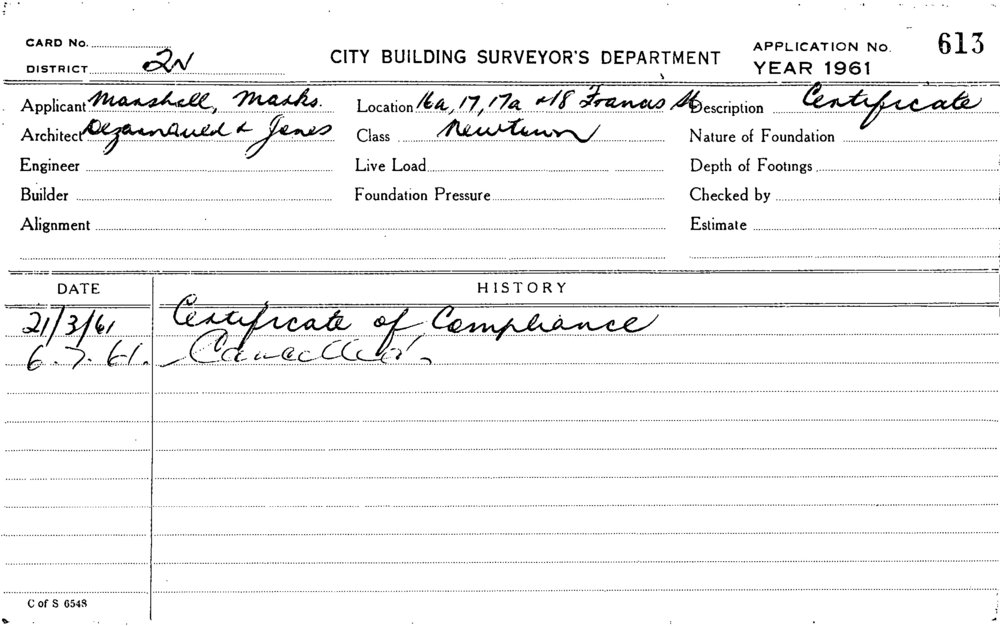 CARD No.
DISTRICT 2N
CITY BUILDING SURVEYOR'S DEPARTMENT
APPLICATION No. 613
YEAR 1961
Applicant Marshall, Marks.
Location 16a, 17, 17a & 18 Francis St
Description Certificate
Architect & Jones
Class Newtown
Nature of Foundation
Engineer
Live Load
Depth of Footings
Builder
Foundation Pressure
Checked by
Alignment
Estimate
DATE HISTORY
21/3/61 Certificate of Compliance
6.7.61. Cancelled.
C of S 6548